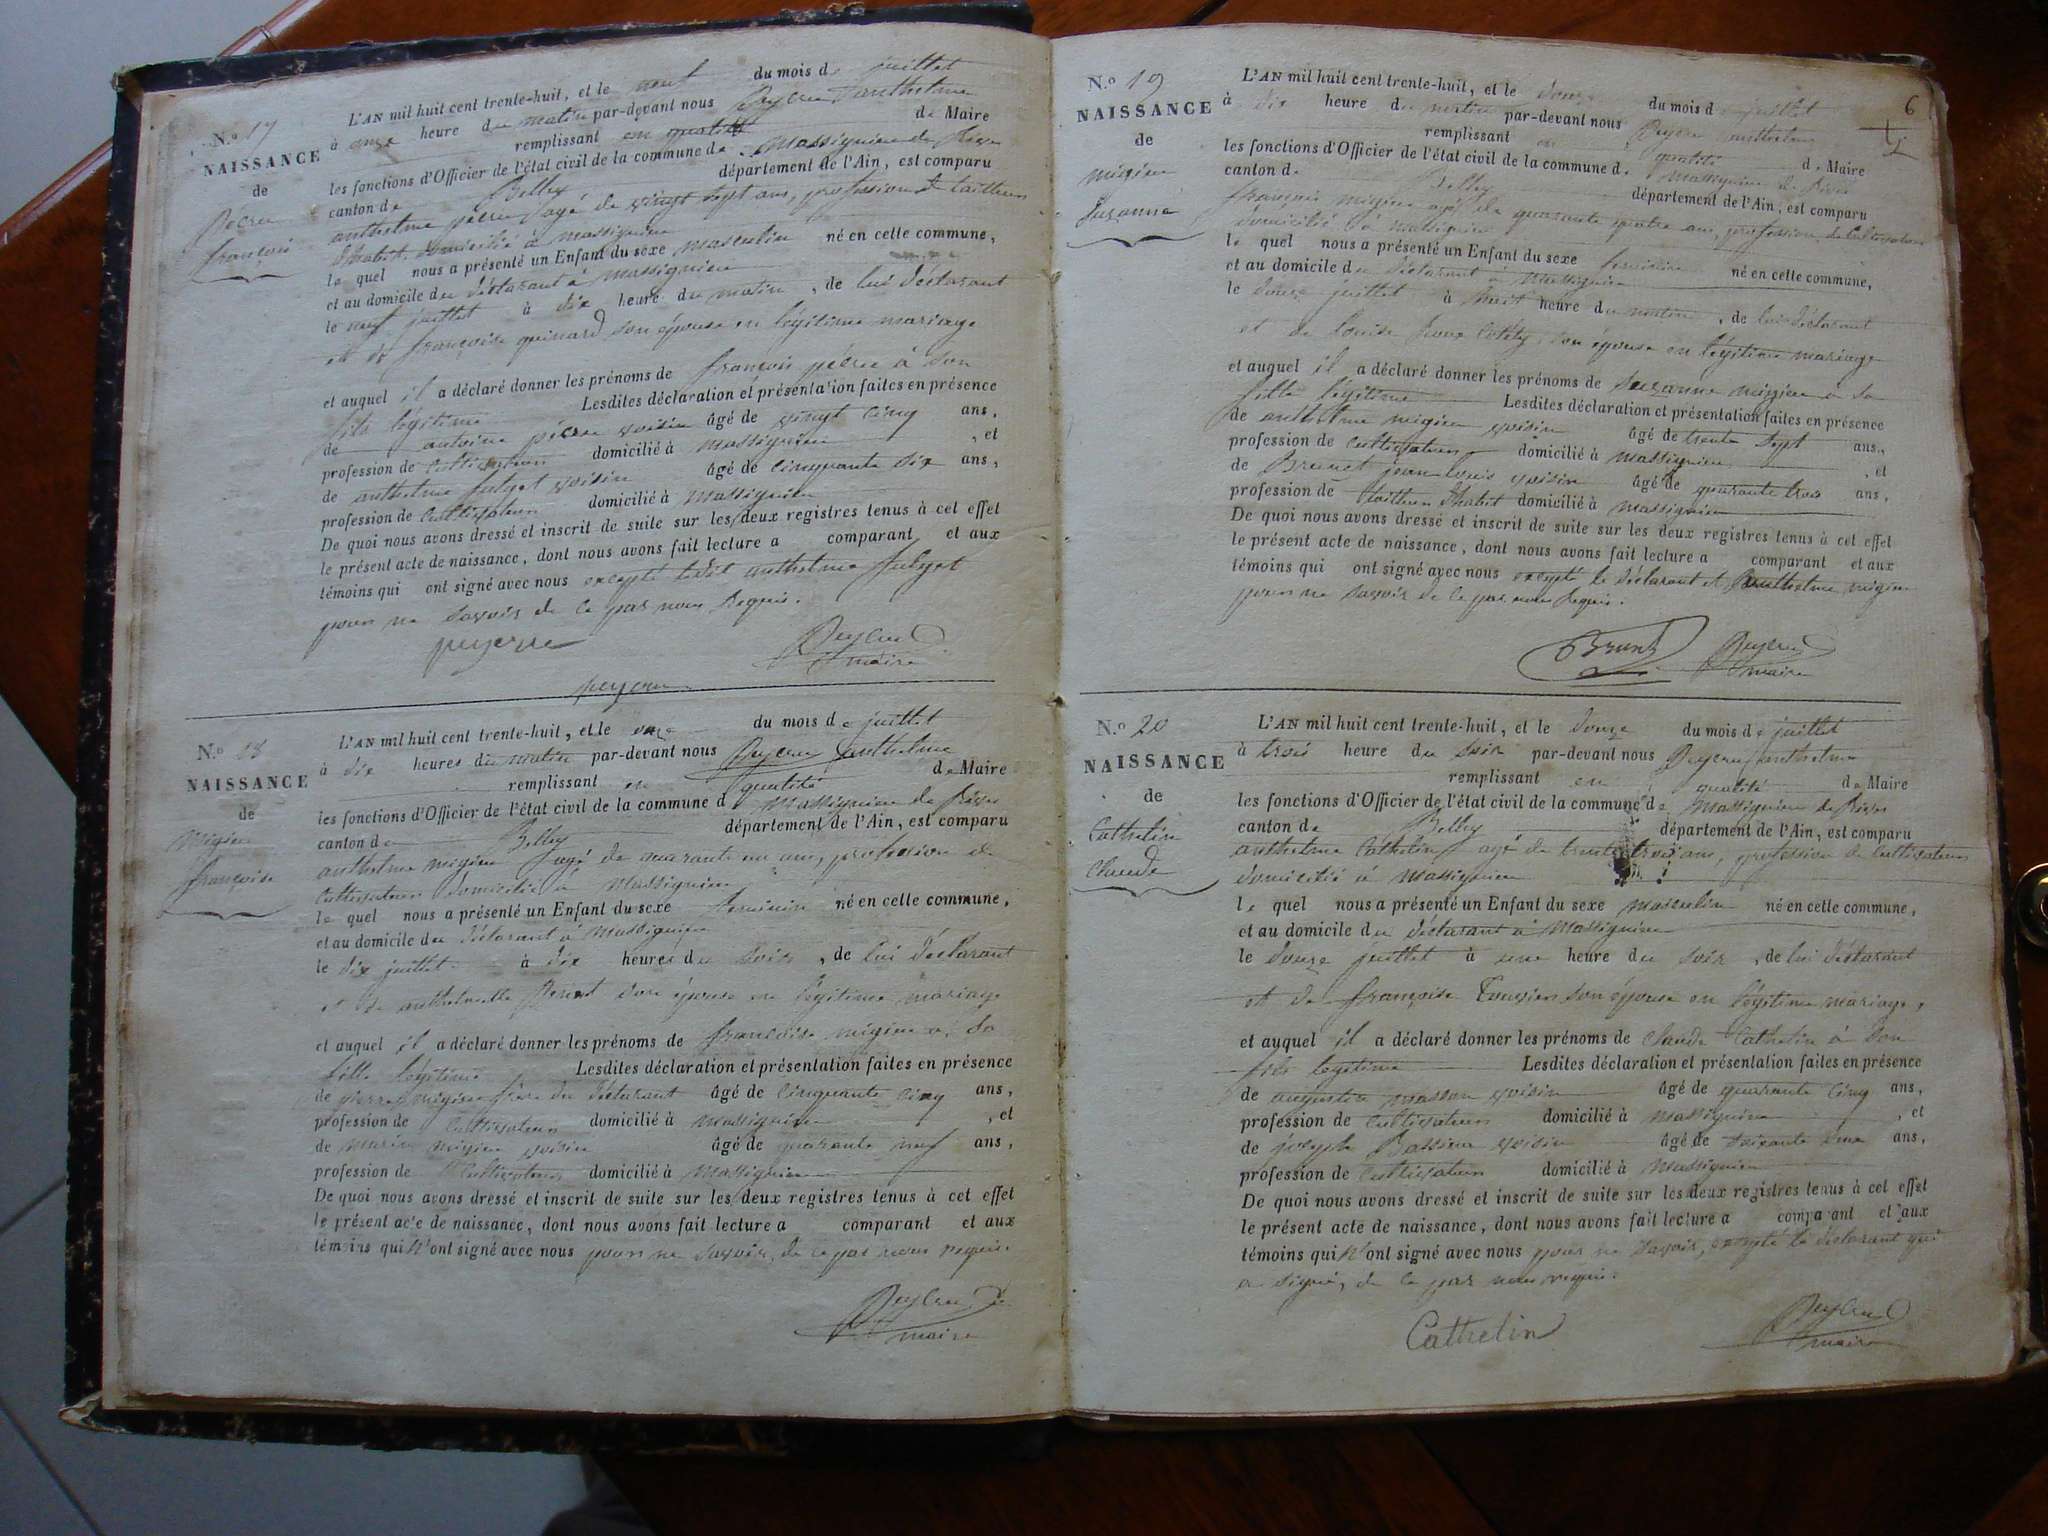 N.o 17
NAISSANCE
de
Pécru
françois
L'AN mil huit cent trente-huit, et le neuf du mois de juillet
à onze heure du matin par-devant nous Peyerne anthelme
remplissant en qualité de Maire
les fonctions d'Officier de l'état civil de la commune de Massignieu de Rives
canton de Belley département de l'Ain, est comparu
anthelme agé de vingt sept ans, profession de tailleur
d'habit, domicilié à massignieu
le quel nous a présenté un Enfant du sexe masculin né en cette commune,
et au domicile du déclarant à massignieu
le neuf juillet à dix heure du matin, de lui déclarant
et de françoise guinard son épouse en légitime mariage
et auquel il a déclaré donner les prénoms de françois à son
fils légitime Lesdites déclaration et présentation faites en présence
de antoine voisin âgé de vingt cinq ans,
profession de cultivateur domicilié à massignieu, et
de anthelme fulget voisin âgé de cinquante six ans,
profession de cultivateur domicilié à massignieu
De quoi nous avons dressé et inscrit de suite sur les deux registres tenus à cet effet
le présent acte de naissance, dont nous avons fait lecture a comparant et aux
témoins qui ont signé avec nous excepté ledit anthelme fulget
pour ne savoir de ce par nous requis.
maire
N.o 18
NAISSANCE
de
Migieu
françoise
L'AN mil huit cent trente-huit, et le onze du mois de juillet
à dix heures du matin par-devant nous anthelme
remplissant en qualité de Maire
les fonctions d'Officier de l'état civil de la commune de Massignieu de Rives
canton de Belley département de l'Ain, est comparu
anthelme migieu agé de quarante un ans, profession de
cultivateur domicilié à Massignieu
le quel nous a présenté un Enfant du sexe féminin né en cette commune,
et au domicile du déclarant à Massignieu
le dix juillet à dix heures du soir, de lui déclarant
et de anthelmette son épouse en légitime mariage
et auquel il a déclaré donner les prénoms de françoise migieu à sa
fille légitime Lesdites déclaration et présentation faites en présence
de pierre migieu frère du déclarant âgé de cinquante cinq ans,
profession de cultivateur domicilié à massignieu, et
de marin migieu voisin âgé de quarante neuf ans,
profession de cultivateur domicilié à Massignieu
De quoi nous avons dressé et inscrit de suite sur les deux registres tenus à cet effet
le présent acte de naissance, dont nous avons fait lecture a comparant et aux
témoins qui n'ont signé avec nous pour ne savoir, de ce par nous requis.
maire
6
N.o 19
NAISSANCE
de
migieu
suzanne
L'AN mil huit cent trente-huit, et le douze du mois de juillet
à dix heure du matin par-devant nous anthelme
remplissant en qualité de Maire
les fonctions d'Officier de l'état civil de la commune de Massignieu de Rives
canton de Belley département de l'Ain, est comparu
françois migieu agé de quarante quatre ans, profession de cultivateur
domicilié à massignieu
le quel nous a présenté un Enfant du sexe féminin né en cette commune,
et au domicile du déclarant à Massignieu
le douze juillet à huit heure du matin, de lui déclarant
et de louise son épouse en légitime mariage
et auquel il a déclaré donner les prénoms de suzanne migieu à sa
fille légitime Lesdites déclaration et présentation faites en présence
de anthelme migieu voisin âgé de trente sept ans,
profession de cultivateur domicilié à massignieu, et
de Brunet jean louis voisin âgé de quarante trois ans,
profession de tailleur d'habit domicilié à massignieu
De quoi nous avons dressé et inscrit de suite sur les deux registres tenus à cet effet
le présent acte de naissance, dont nous avons fait lecture a comparant et aux
témoins qui ont signé avec nous excepté le déclarant et anthelme migieu
pour ne savoir de ce par nous requis.
maire
N.o 20
NAISSANCE
de
Cathelin
claude
L'AN mil huit cent trente-huit, et le douze du mois de juillet
à trois heure du soir par-devant nous anthelme
remplissant en qualité de Maire
les fonctions d'Officier de l'état civil de la commune de Massignieu de Rives
canton de Belley département de l'Ain, est comparu
anthelme Cathelin agé de trente trois ans, profession de cultivateur
domicilié à Massignieu
le quel nous a présenté un Enfant du sexe masculin né en cette commune,
et au domicile du déclarant à Massignieu
le douze juillet à une heure du soir, de lui déclarant
et de françoise son épouse en légitime mariage,
et auquel il a déclaré donner les prénoms de claude Cathelin à son
fils légitime Lesdites déclaration et présentation faites en présence
de augustin masson voisin âgé de quarante cinq ans,
profession de cultivateur domicilié à massignieu, et
de joseph voisin âgé de soixante ans,
profession de cultivateur domicilié à Massignieu
De quoi nous avons dressé et inscrit de suite sur les deux registres tenus à cet effet
le présent acte de naissance, dont nous avons fait lecture a comparant et aux
témoins qui n'ont signé avec nous pour ne savoir, excepté le déclarant qui
a signé, de ce par nous requis.
Cathelin
maire